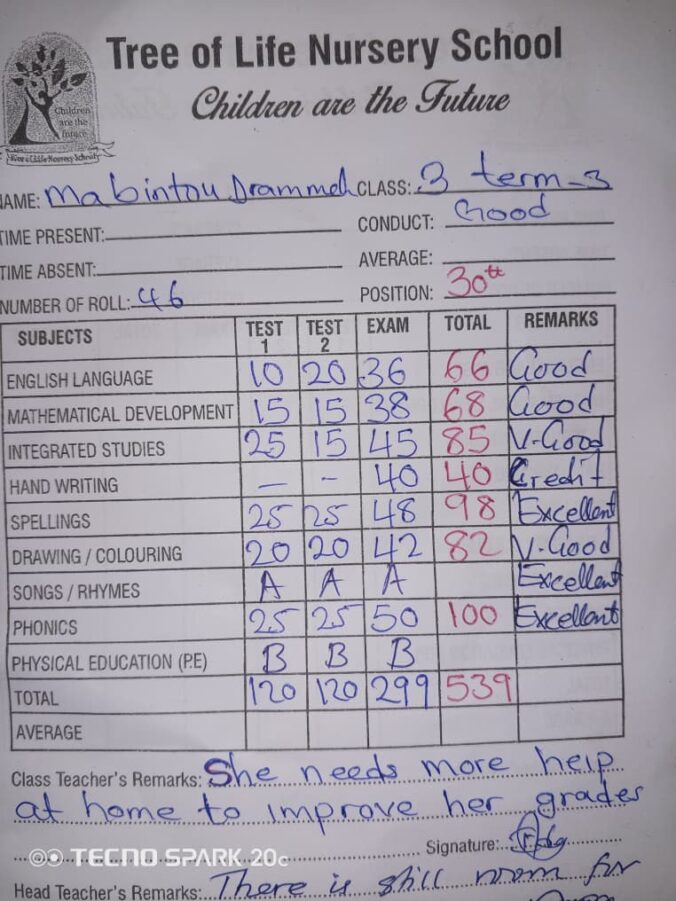 Tree of Life Nursery School
Children are the Future
Children
are the
future
Tree of Life Nursery School
NAME: Mabintou Drammeh CLASS: 3 term-3
TIME PRESENT: CONDUCT: Good
TIME ABSENT: AVERAGE:
NUMBER OF ROLL: 46 POSITION: 30th
SUBJECTS TEST 1 TEST 2 EXAM TOTAL REMARKS
ENGLISH LANGUAGE 10 20 36 66 Good
MATHEMATICAL DEVELOPMENT 15 15 38 68 Good
INTEGRATED STUDIES 25 15 45 85 V-Good
HAND WRITING — - 40 40 Credit
SPELLINGS 25 25 48 98 Excellent
DRAWING / COLOURING 20 20 42 82 V.Good
SONGS / RHYMES A A A Excellent
PHONICS 25 25 50 100 Excellent
PHYSICAL EDUCATION (P.E) B B B
TOTAL 120 120 299 539
AVERAGE
Class Teacher's Remarks: She needs more help
at home to improve her grades
Signature:
TECNO SPARK 20c
Head Teacher's Remarks: There is still room for